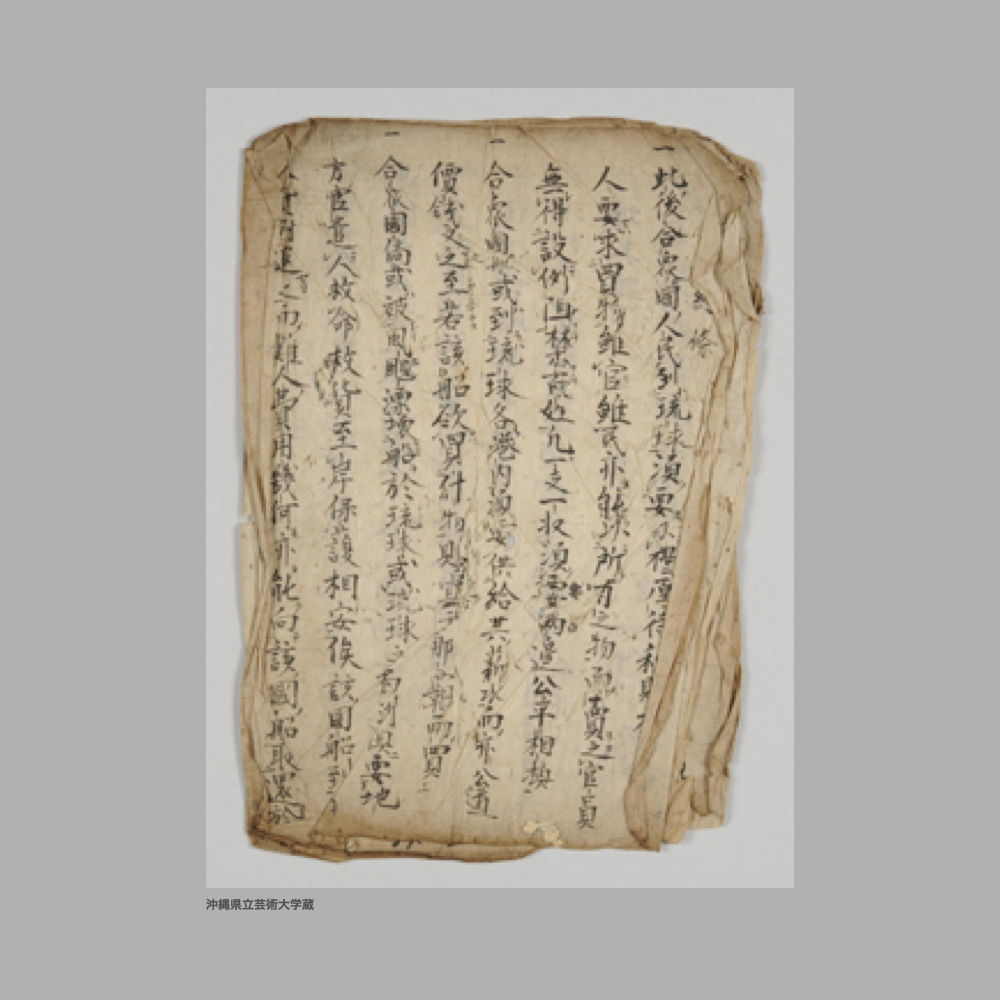 條
一此後合衆國人民到琉球須要以禮厚待和
人要求買物雖官雖民亦能以所有之物而賣之官員
無得設例阻禁百姓凡一支一收須要兩邊公平相換
一合衆國船或到琉球各港內須要供給其薪水而亦公道
價錢支之至若該船欲買什物則宜于那霸而買
一合衆國船或被風颶漂壞船於琉球或琉球之屬洲俱要地
方官遣人救命救貨至岸保護相安俟該國船到
之而難人費用幾何亦能向該國船取還於
沖縄県立芸術大学蔵